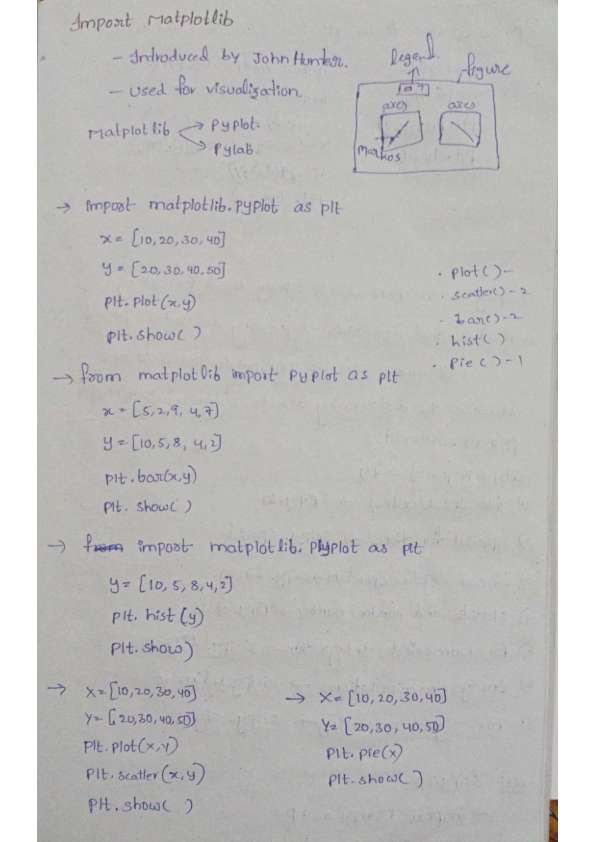 Import Matplotlib
- Introduced by John Hunter.
- Used for visualization
Matplotlib
Pyplot.
Pylab
legend
figure
axes
axes
→ import matplotlib.pyplot as plt
x = [10,20,30,40]
y = [20,30,40,50]
plt.plot(x,y)
plt.show( )
. plot( )-
. scatler( )-2
. bar( )-2
. hist( )
. Pie ( )-1
→ from matplotlib import pyplot as plt
x = [5,2,9,4,7]
y = [10,5,8,4,2]
plt.bar(x,y)
plt. show( )
→ from import matplotlib. Pyplot as plt
y = [10, 5, 8, 4, 2]
plt. hist (y)
plt. show)
→ X = [10,20,30,40]
Y = [20,30,40,50]
plt. plot(x,y)
plt. scatler (x,y)
plt. show( )
→ X = [10,20,30,40]
Y = [20,30,40,50]
plt. pie(x)
plt. show( )